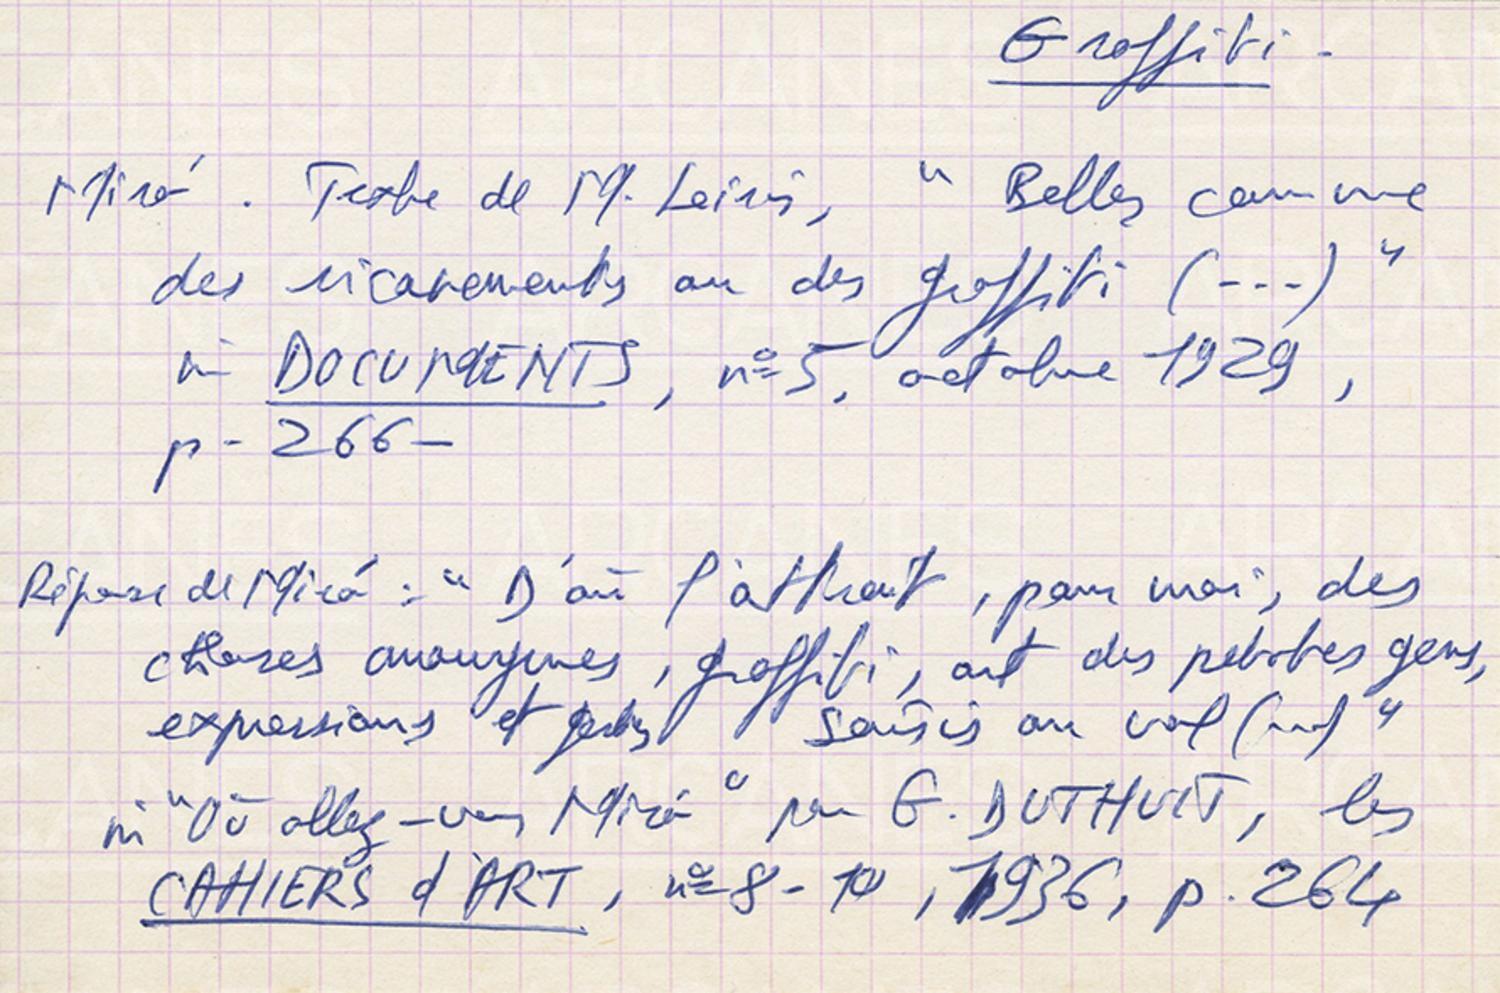 Graffiti -
Miró. Texte de M. Leiris, " Belles comme
des ricanements ou des graffiti (---) "
in DOCUMENTS, n° 5, octobre 1929,
p - 266 -
Réponse de Miró : " D'où l'attrait, pour moi, des
choses anonymes, graffiti, art des petites gens,
expressions et gestes saisis au vol (...) "
in "Où allez-vous Miró" par G. DUTHUIT, les
CAHIERS d'ART, n° 8 - 10, 1936, p. 264